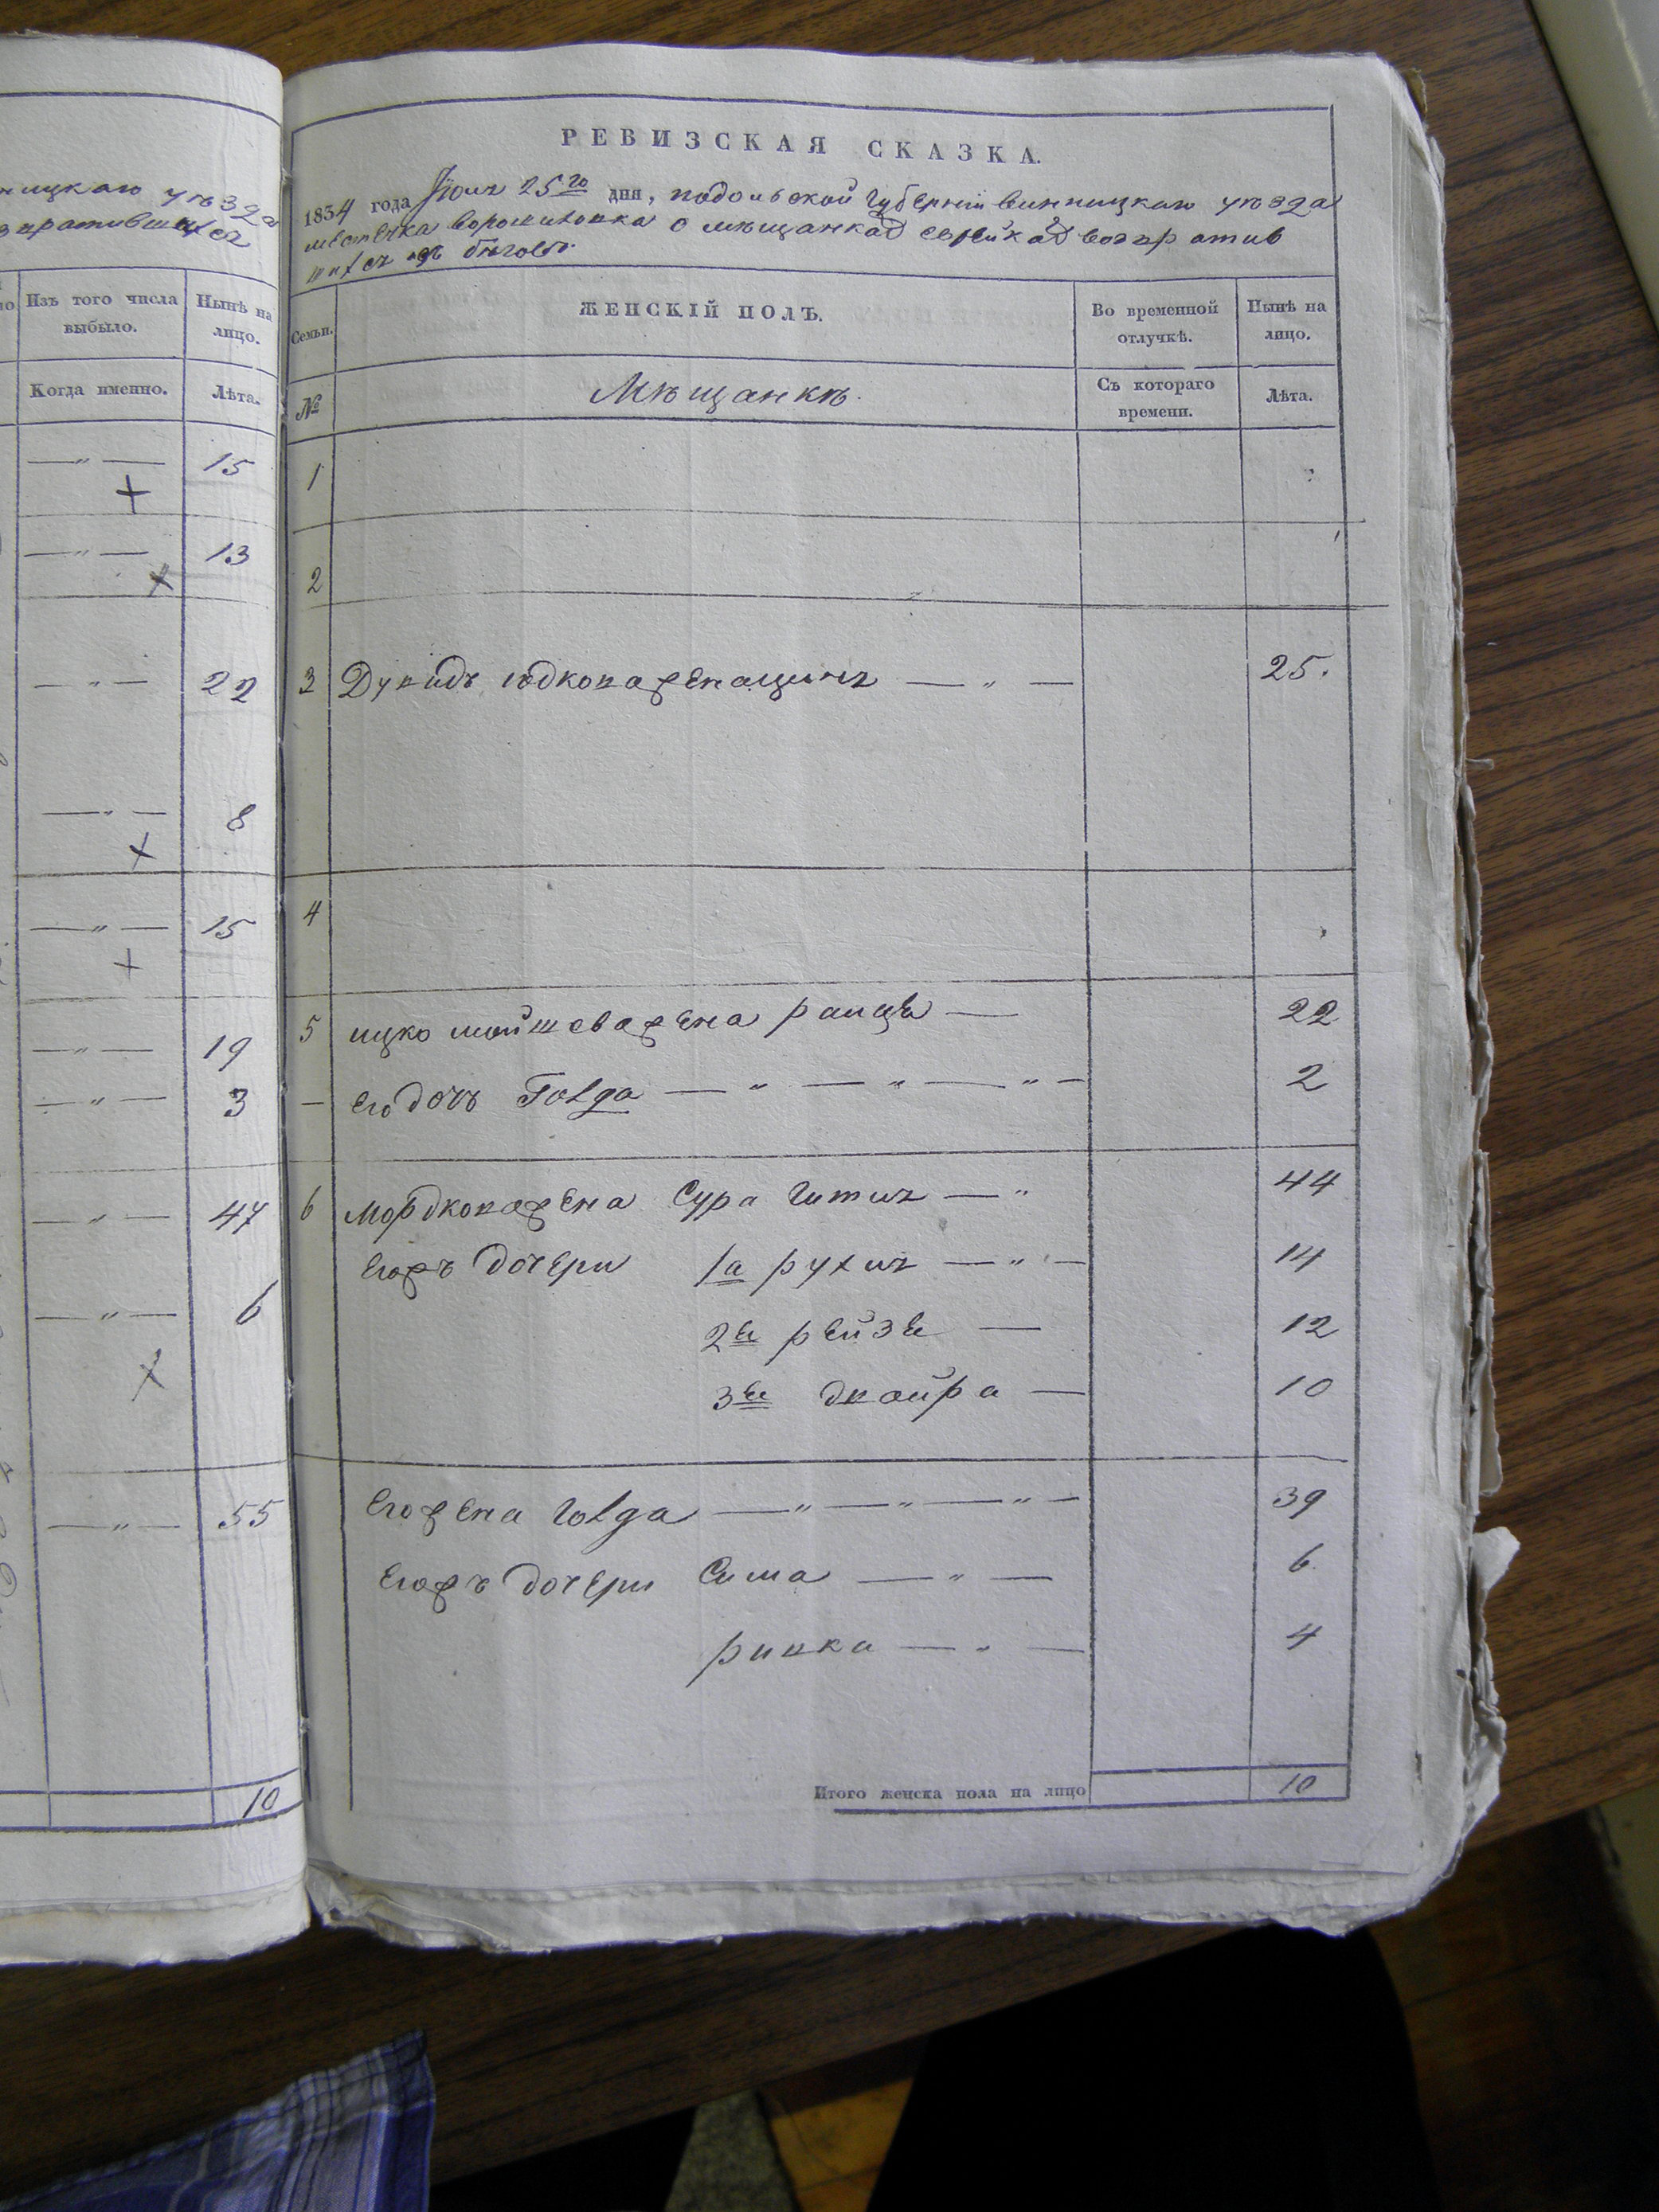 ницкаго уѣзда
зкратившихся
Изъ того числа выбыло.
Нынѣ на лицо.
Когда именно.
Лѣта.
—"— 15
—"— 13
—"— 22
—"— 8
—"— 15
—"— 19
—"— 3
—"— 47
—"— 6
—"— 55
10
РЕВИЗСКАЯ СКАЗКА.
1834 года Июня 25го дня, подольской Губерніи винницкаго уѣзда
местечка вороновка о мѣщанкад еврейкад возврятив
шихся изъ бѣговъ.
Семьи.
ЖЕНСКІЙ ПОЛЪ.
Во временной отлучкѣ.
Нынѣ на лицо.
№
Мѣщанкѣ.
Съ котораго времени.
Лѣта.
1
2
3 юдкова жена —"— 25.
4
5 ицко мойшева жена — 22
— Его дочь Голда —"—"—"— 2
6 Мордкова жена Сура Гитля —" 44
Егожъ дочери 1а рухля —"— 14
2я рейзя — 12
3я двойра — 10
Его жена Голда —"—"—"— 39
Егожъ дочери Сима —"— 6
ривка —"— 4
Итого женска пола на лицо 10